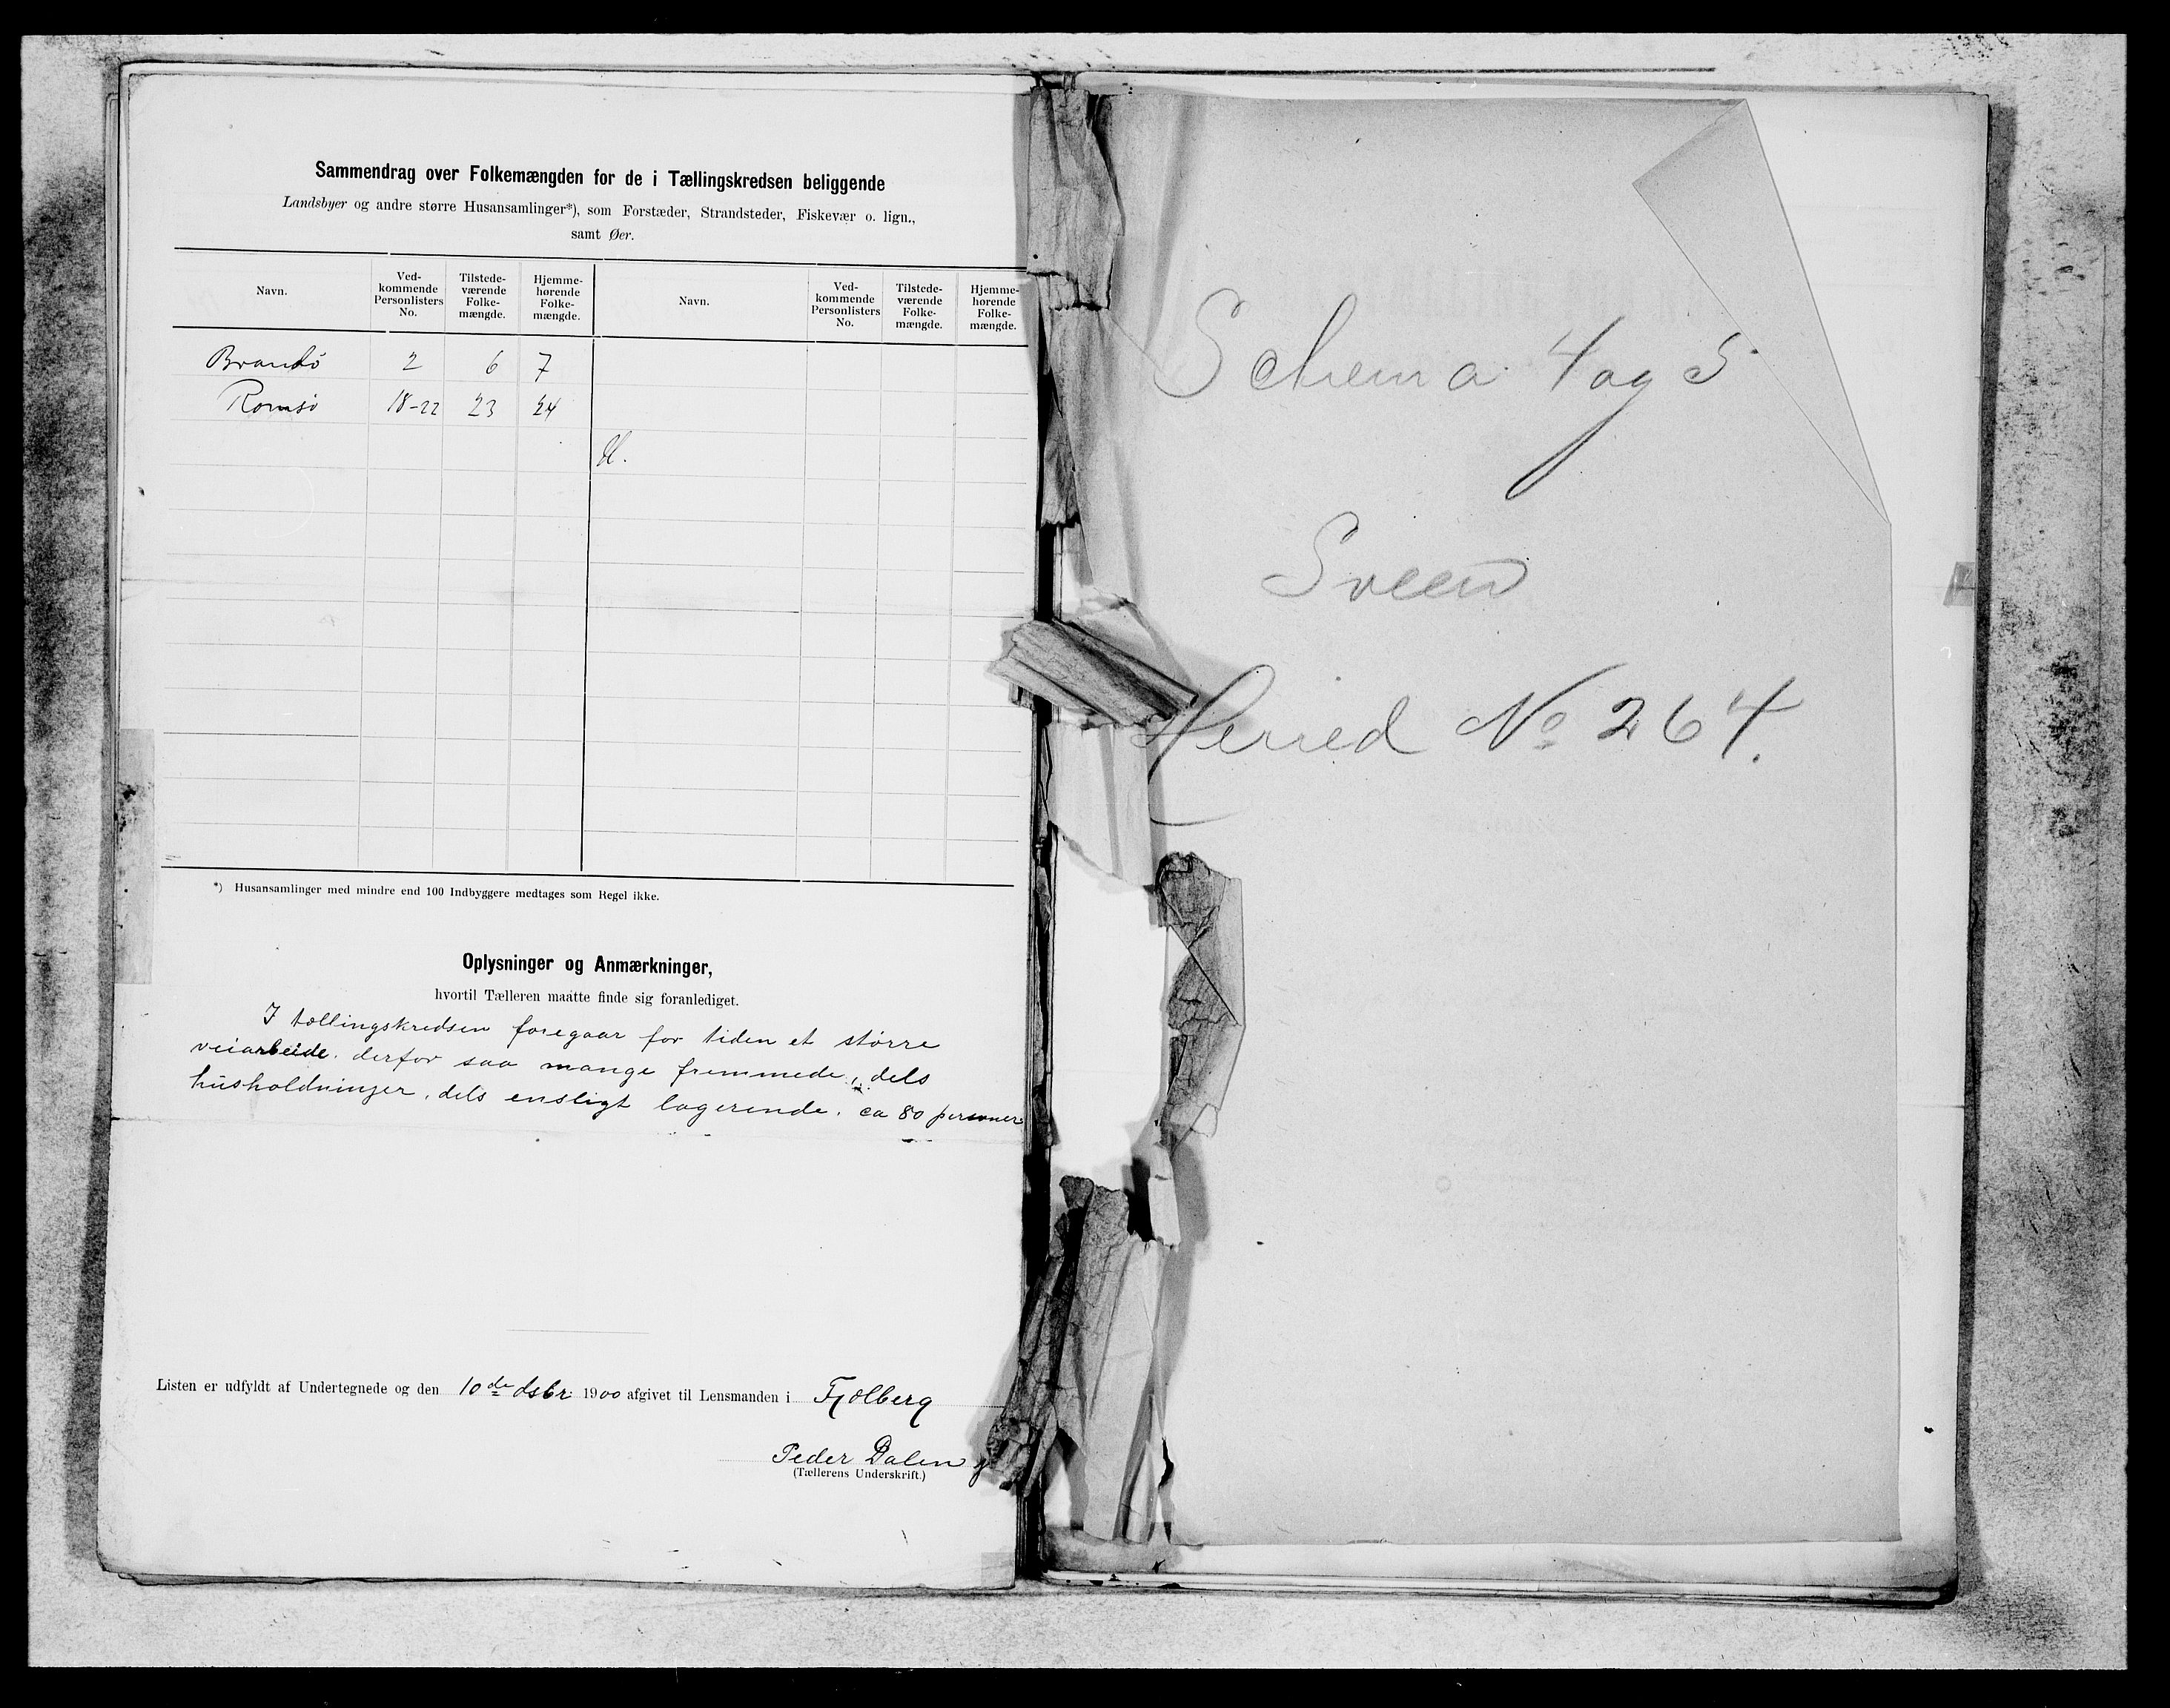 Sammendrag over Folkemængden for de i Tællingskredsen beliggende
Landsbyer og andre større Husansamlinger*), som Forstæder, Strandsteder, Fiskevær o. lign.,
samt Øer.
Navn. Ved-kommende Personlisters No. Tilstede-værende Folke-mængde. Hjemme-hørende Folke-mængde. Navn. Ved-kommende Personlisters No. Tilstede-værende Folke-mængde. Hjemme-hørende Folke-mængde.
Brandö 2 6 7
Romsö 18-22 23 24
*) Husansamlinger med mindre end 100 Indbyggere medtages som Regel ikke.
Oplysninger og Anmærkninger,
hvortil Tælleren maatte finde sig foranlediget.
I tællingskredsen foregaar for tiden et större
veiarbeide. derfor saa mange fremmede, dels
husholdninger, dels ensligt logerende. ca 80 personer
Listen er udfyldt af Undertegnede og den 10de dsbr 1900 afgivet til Lensmanden i Fjelberg
Peder Dalen
(Tællerens Underskrift.)
Schema 4 og 5
Sveen
Herred No 264.